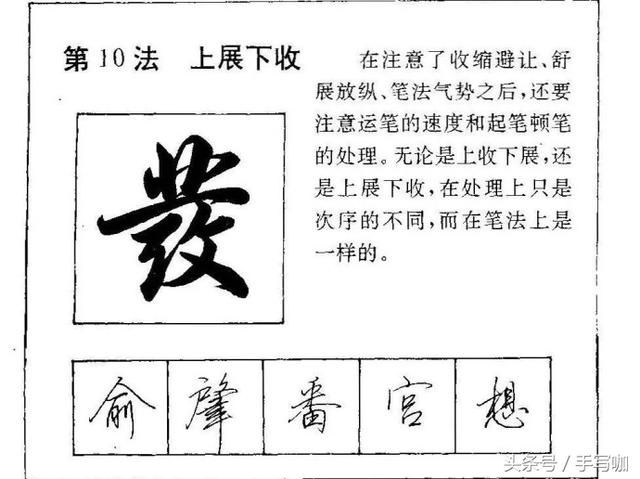 第10法 上展下收
在注意了收缩避让、舒
展放纵、笔法气势之后,还要
注意运笔的速度和起笔顿笔
的处理。无论是上收下展,还
是上展下收,在处理上只是
次序的不同,而在笔法上是
一样的。
發
俞 肇 番 宫 想
头条号 / 手写咖